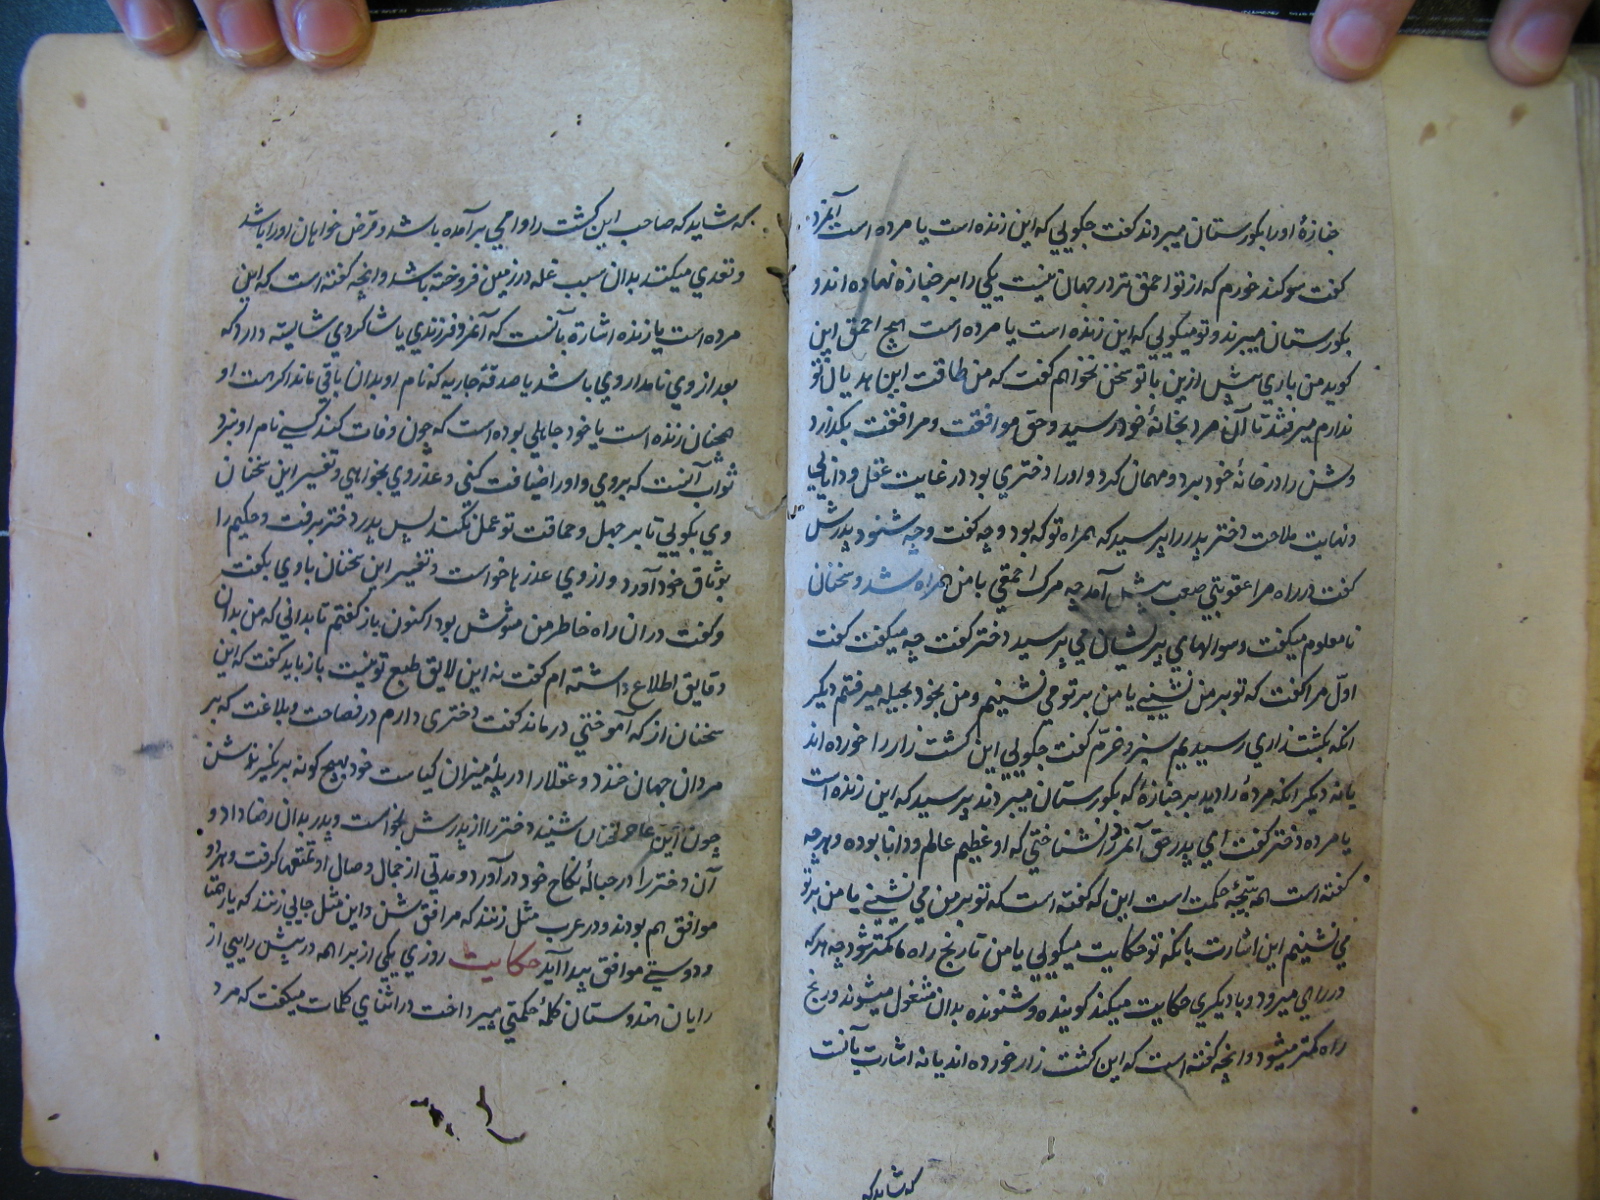 جنازهٔ او را بکورستان میبردند کفت جکویی که این زنده است یا مرده است آنمرد
کفت سوکند خورم که از تو احمق تر در جهان نیست یکی را بر جنازه نهاده اند و
بکورستان میبرند و تو میکویی که این زنده است یا مرده است هیچ احمق این
کوید من باری پیش ازین با تو سخن نخواهم کفت که من طاقت این هذیان تو
ندارم میرفتند تا آن مرد بخانهٔ خود رسید و حق موافقت و مرافقت بکذارد
و شن را در خانهٔ خود برد و مهمان کرد و او را دختری بود در غایت عقل و دانایی
و نهایت ملاحت دختر پدر را پرسید که همراه تو که بود و چه کفت و چه شنود پدرش
کفت در راه مرا عقوبتی صعب پیش آمد چه مرک احمقی با من همراه شد و سخنان
نامعلوم میکفت و سوالهای پریشان می پرسید دختر کفت چه میکفت کفت
اوّل مرا کفت که تو بر من نشینی یا من بر تو می نشینم و من بخود بحیله میرفتم دیکر
انکه بکشتزاری رسیدیم سبز و خرّم کفت جکویی این کشت زار را خورده اند
یا نه دیکر انکه مردهٔ را دید بر جنازهٔ که بکورستان میبردند پرسید که این زنده است
یا مرده دختر کفت ای پدر حق آنمرد نشناختی که او عظیم عالم و دانا بوده و هر چه
کفته است همه نتیجهٔ حکمت است این که کفته است که تو بر من می نشینی یا من بر تو
می نشینم این اشارت بانکه تو حکایت میکویی یا من تا رنج راه ما کمتر شود چه هر که
در راهی میرود و با دیکری حکایت میکند کوینده و شنونده بدان مشغول میشوند و رنج
راه کمتر میشود و انچه کفته است که این کشت زار خورده اند یا نه اشارت بآنست
که شاید که
که شاید که صاحب این کشت را وامی برآمده باشد و قرض خواهان او را باشد
و تعدی میکند بدان سبب غله در زمین فروخته باشد و انچه کفته است که این
مرده است یا زنده اشارة بآنست که آنمرد فرزندی یا شاکردی شایسته دارد که
بعد از وی نامدار وی باشد یا صدقهٔ جاریه که نام او بدان باقی ماند اکر هست او
همچنان زنده است یا خود جاهلی بوده است که چون وفات کند کسی نام او نبرد
ثواب آنست که بروی و او را ضیافت کنی و عذر وی بخواهی و تفسیر این سخنان
وی بکویی تا بر جهل و حماقت تو عمل نکند پس پدر دختر برفت و حکیم را
بوثاق خود آورد و از وی عذرها خواست و تفسیر این سخنان با وی بکفت
و کفت در ان راه خاطر من مشوش بود اکنون باز کفتم تا بدانی که من بدان
دقایق اطلاع داشته ام کفت نه این لایق طبع تو نیست باز باید کفت که این
سخنان از که آموختی درماند کفت دختری دارم در فصاحت و بلاغت که بر
مردان جهان خندد و عقلا را در پلهٔ میزان کیاست خود بهیچ کونه بر نکیرد شن
چون این شنید دختر را از پدرش بخواست و پدر بدان رضا داد و
آن دختر را در حبالهٔ نکاح خود در آورد و مدتی از جمال و وصال او تمتعها کرفت و هر دو
موافق هم بودند و در عرب مثل زنند که مرافق شن و این مثل جایی زنند که یار همتا
و دوستی موافق پیدا آید حکایت روزی یکی از براهمه در پیش رایی از
رایان هندوستان کلمهٔ حکمتی میپرداخت در اثنای کلمات میکفت که مرد